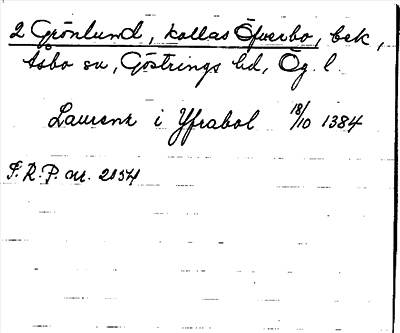 2 Grönlund, kallas Öfverbo, bek,
Åsbo sn, Göstrings hd, Ög. l.
Laurens i Yfrabol 18/10 1384
S.R.P. nr. 2054